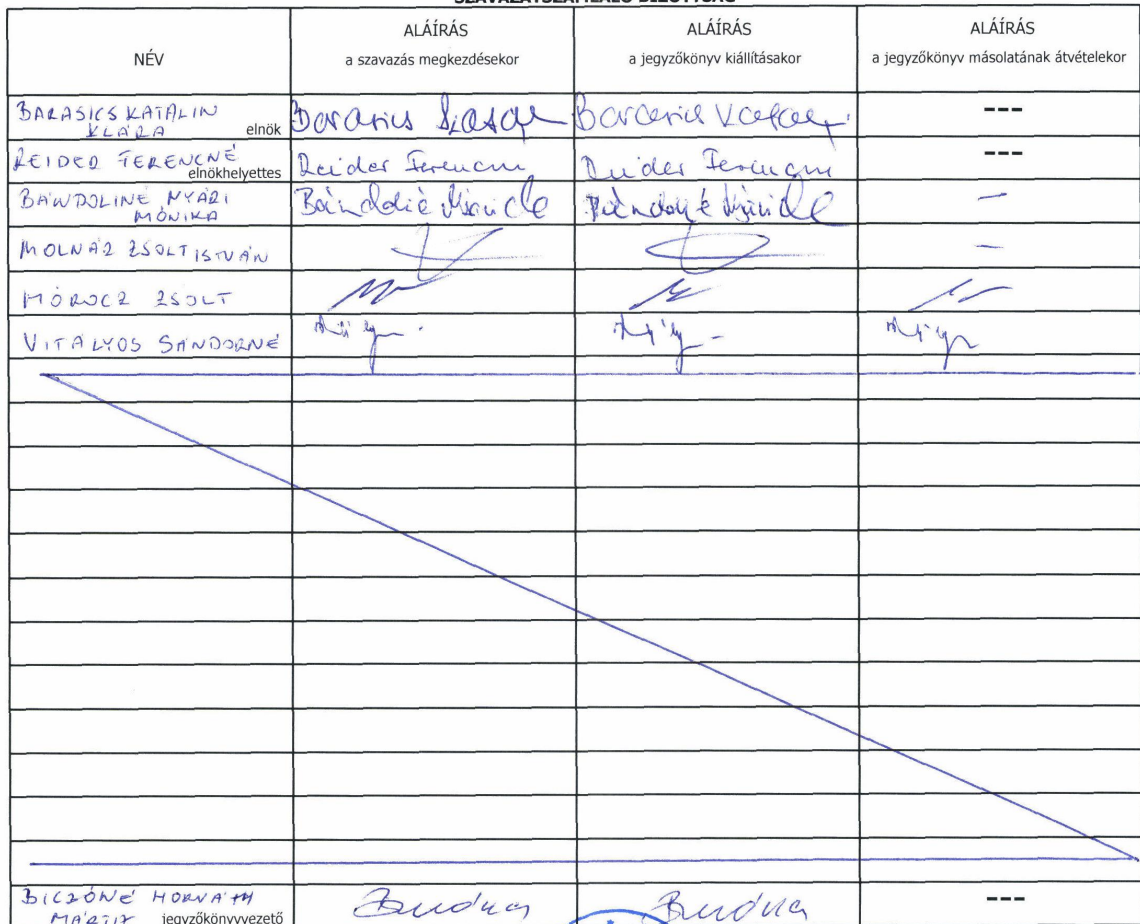 SZAVAZATSZÁMLÁLÓ BIZOTTSÁG
NÉV
ALÁÍRÁS
a szavazás megkezdésekor
ALÁÍRÁS
a jegyzőkönyv kiállításakor
ALÁÍRÁS
a jegyzőkönyv másolatának átvételekor
BARASICS KATALIN
KLÁRA elnök
---
REIDER FERENCNÉ
elnökhelyettes Reider Ferencné Reider Ferencné
---
BÁNDOLINÉ NYÁRI
MÓNIKA
—
MOLNÁR ZSOLT ISTVÁN
—
MÓROCZ ZSOLT
VITÁLYOS SÁNDORNÉ
BICZÓNÉ HORVÁTH
jegyzőkönyvvezető
---